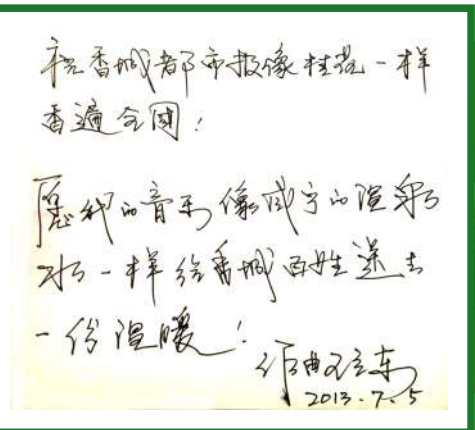 祝香城都市报像桂花一样
香遍全国!
愿我的音乐像咸宁的温泉
水一样给香城百姓送去
一份温暖!
作曲
2013.7.5